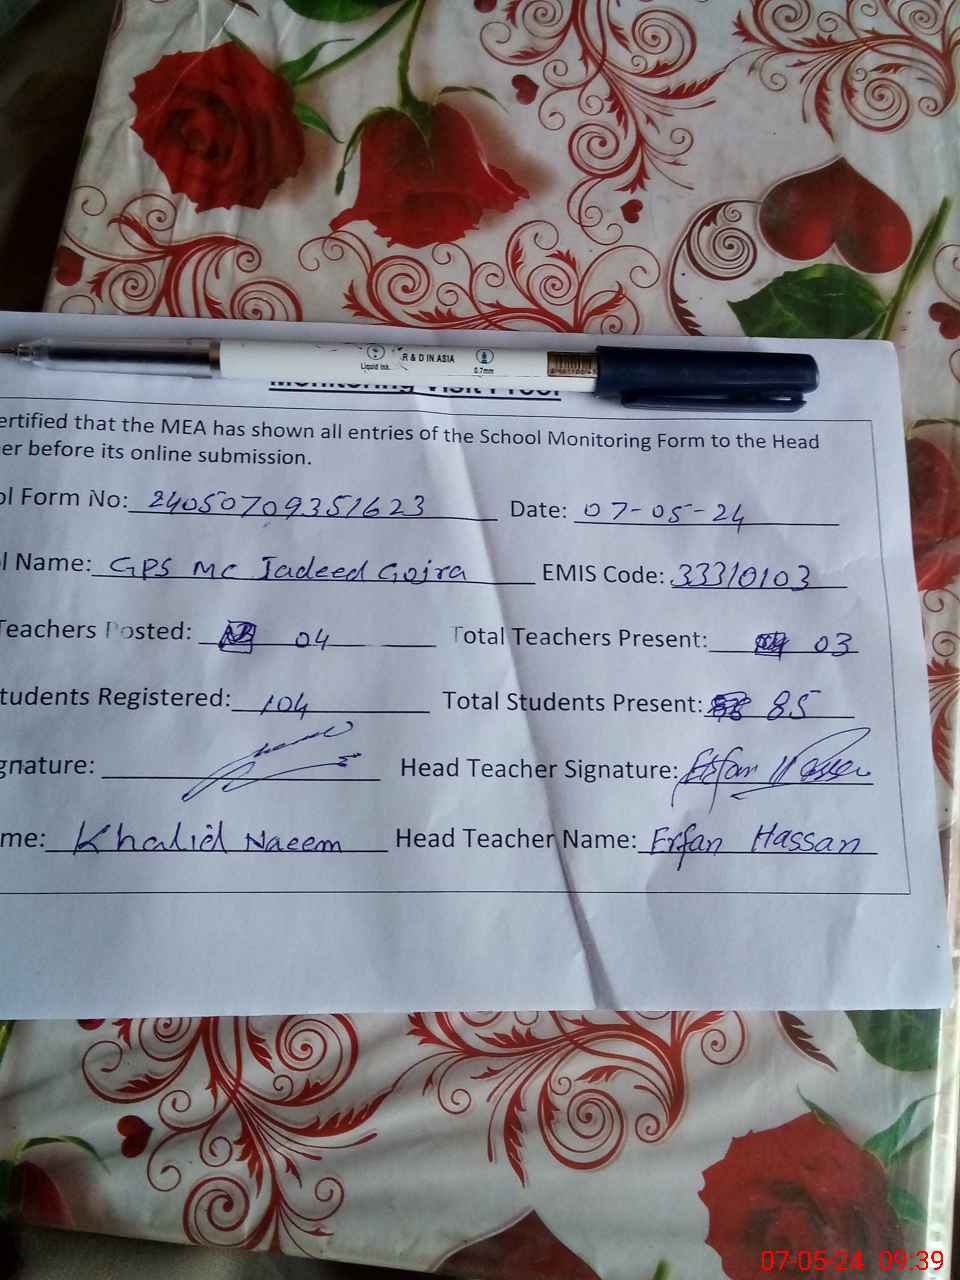 R & D IN ASIA
Liquid Ink. 0.7mm
Monitoring Visit Proof
ertified that the MEA has shown all entries of the School Monitoring Form to the Head
er before its online submission.
ol Form No: 24050709351623 Date: 07-05-24
l Name: GPS MC Jadeed Gojra EMIS Code: 33310103
Teachers Posted: 04 Total Teachers Present: 03
tudents Registered: 104 Total Students Present: 85
gnature: Head Teacher Signature: Erfan Hassan
me: Khalid Naeem Head Teacher Name: Erfan Hassan
07-05-24 09:39